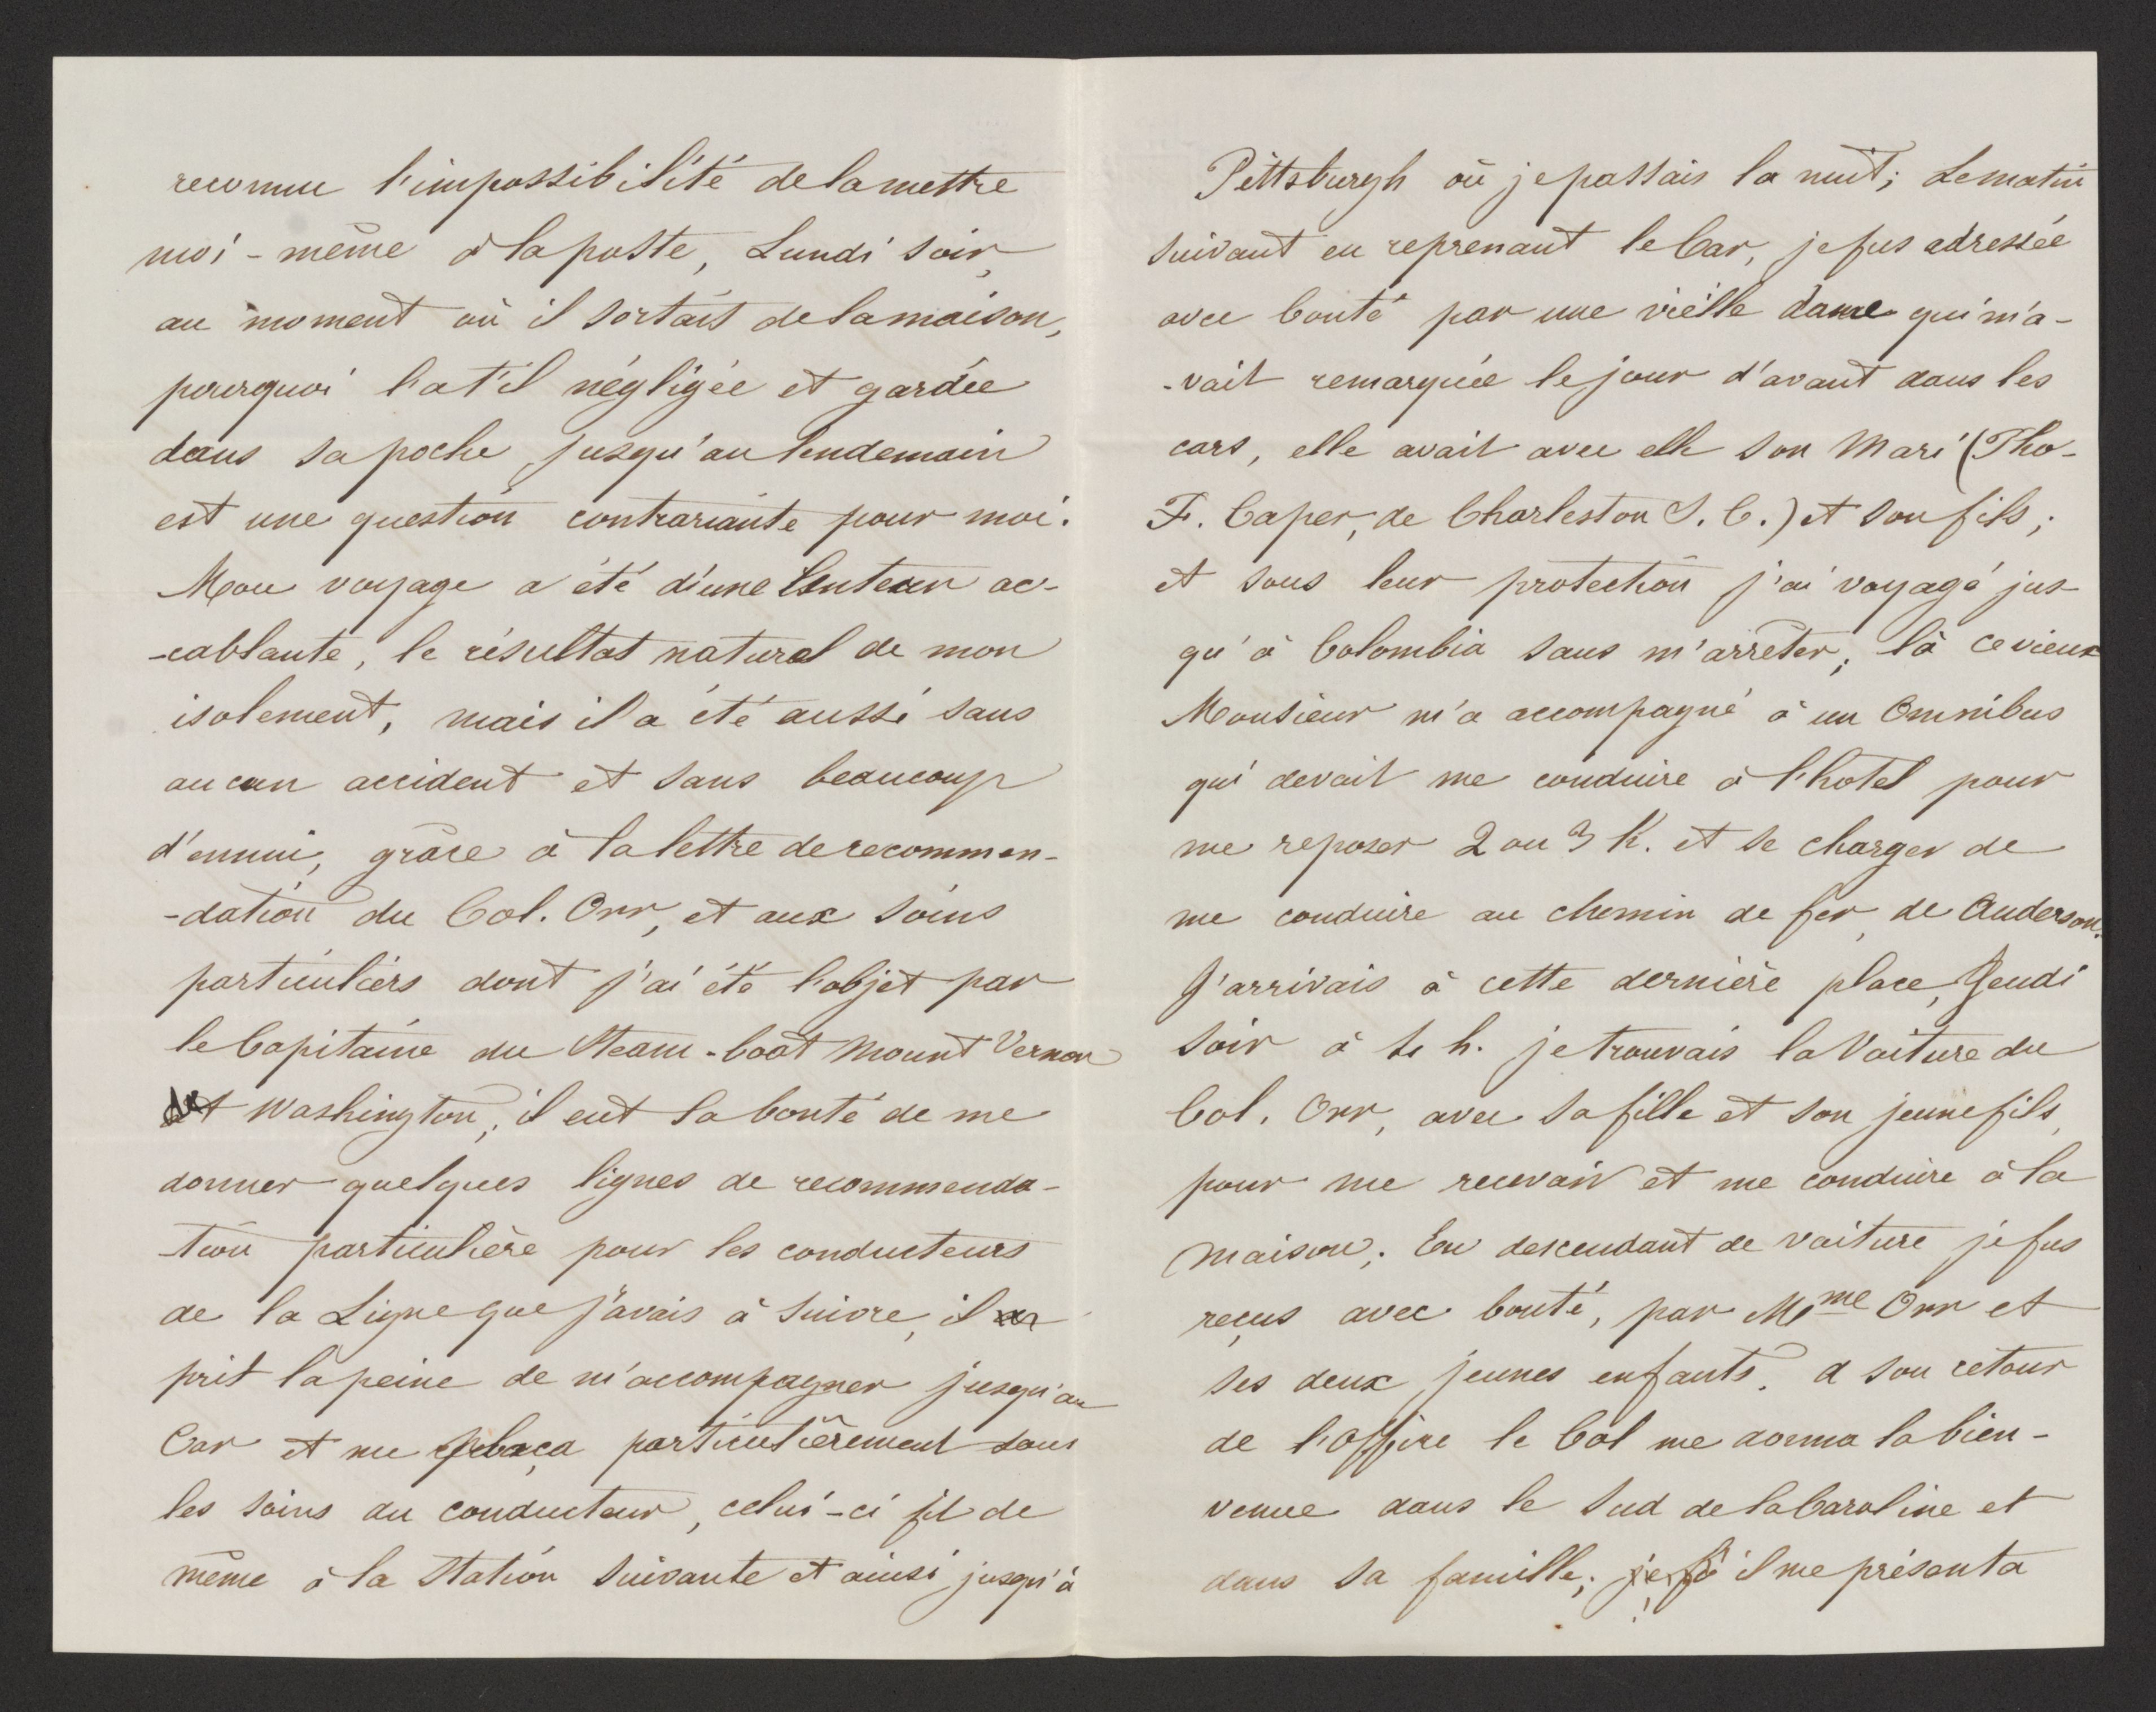 reconnu l'impossibilité de la mettre
moi-même à la poste, Lundi soir,
au moment où il sortais de la maison,
pourquoi l'at'il négligée et gardée
dans sa poche jusqu'au lendemain
est une question contrariante pour moi.
Mon voyage a été d'une lenteur ac-
-cablante, le résultat natural de mon
isolement, mais il a été aussi sans
aucun accident et sans beaucoup
d'ennui, grâce à la lettre de recommen-
-dation du Col. Orr, et aux soins
particuliers dont j'ai été l'objet par
le Capitaine du Steam-boat Mount Vernon
Washington, il eut la bonté de me
donner quelques lignes de recommenda-
-tion particulière pour les conducteurs
de la Ligne que j'avais à suivre, il
prit la peine de m'accompagner jusqu'au
Car et me plaça particulièrement dans
les soins du conducteur, celui-ci fit de
même à la Station suivante et ainsi jusqu'à
Pittsburgh où je passais la nuit; Le matin
suivant en reprenant le Car, je fus adressée
avec bonté par une vieille dame qui m'a-
-vait remarquée le jour d'avant dans les
cars, elle avait avec elle son Mari (Tho-
F. Caper, de Charleston S. C.) et son fils;
et sous leur protection j'ai voyagé jus-
qu'à Colombia sans m'arrêter; là ce vieux
Monsieur m'a accompagné à un Omnibus
qui devait me conduire à l'hotel pour
me reposer 2 ou 3 h. et se charger de
me conduire au chemin de fer, de Anderson.
J'arrivais à cette dernière place, Jeudi
soir à h. je trouvais la Voiture du
Col. Orr, avec sa fille et son jeune fils,
pour me recevoir et me conduire à la
maison; En descendant de voiture je fus
reçus avec bonté, par Mme Orr et
ses deux jeunes enfants. A son retour
de l'Office le Col me donna la bien-
venue dans le Sud de la Caroline et
dans sa famille; il me présenta